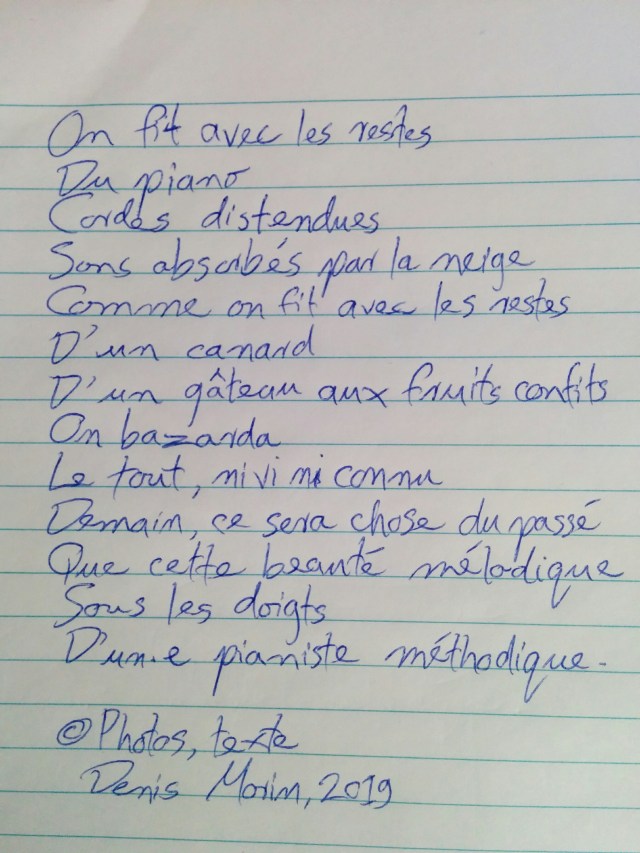 On fit avec les restes
Du piano
Cordes distendues
Sons absorbés par la neige
Comme on fit avec les restes
D'un canard
D'un gâteau aux fruits confits
On bazarda
Le tout, ni vi ni connu
Demain, ce sera chose du passé
Que cette beauté mélodique
Sous les doigts
D'un.e pianiste méthodique.
©Photos, texte
Denis Morin, 2019